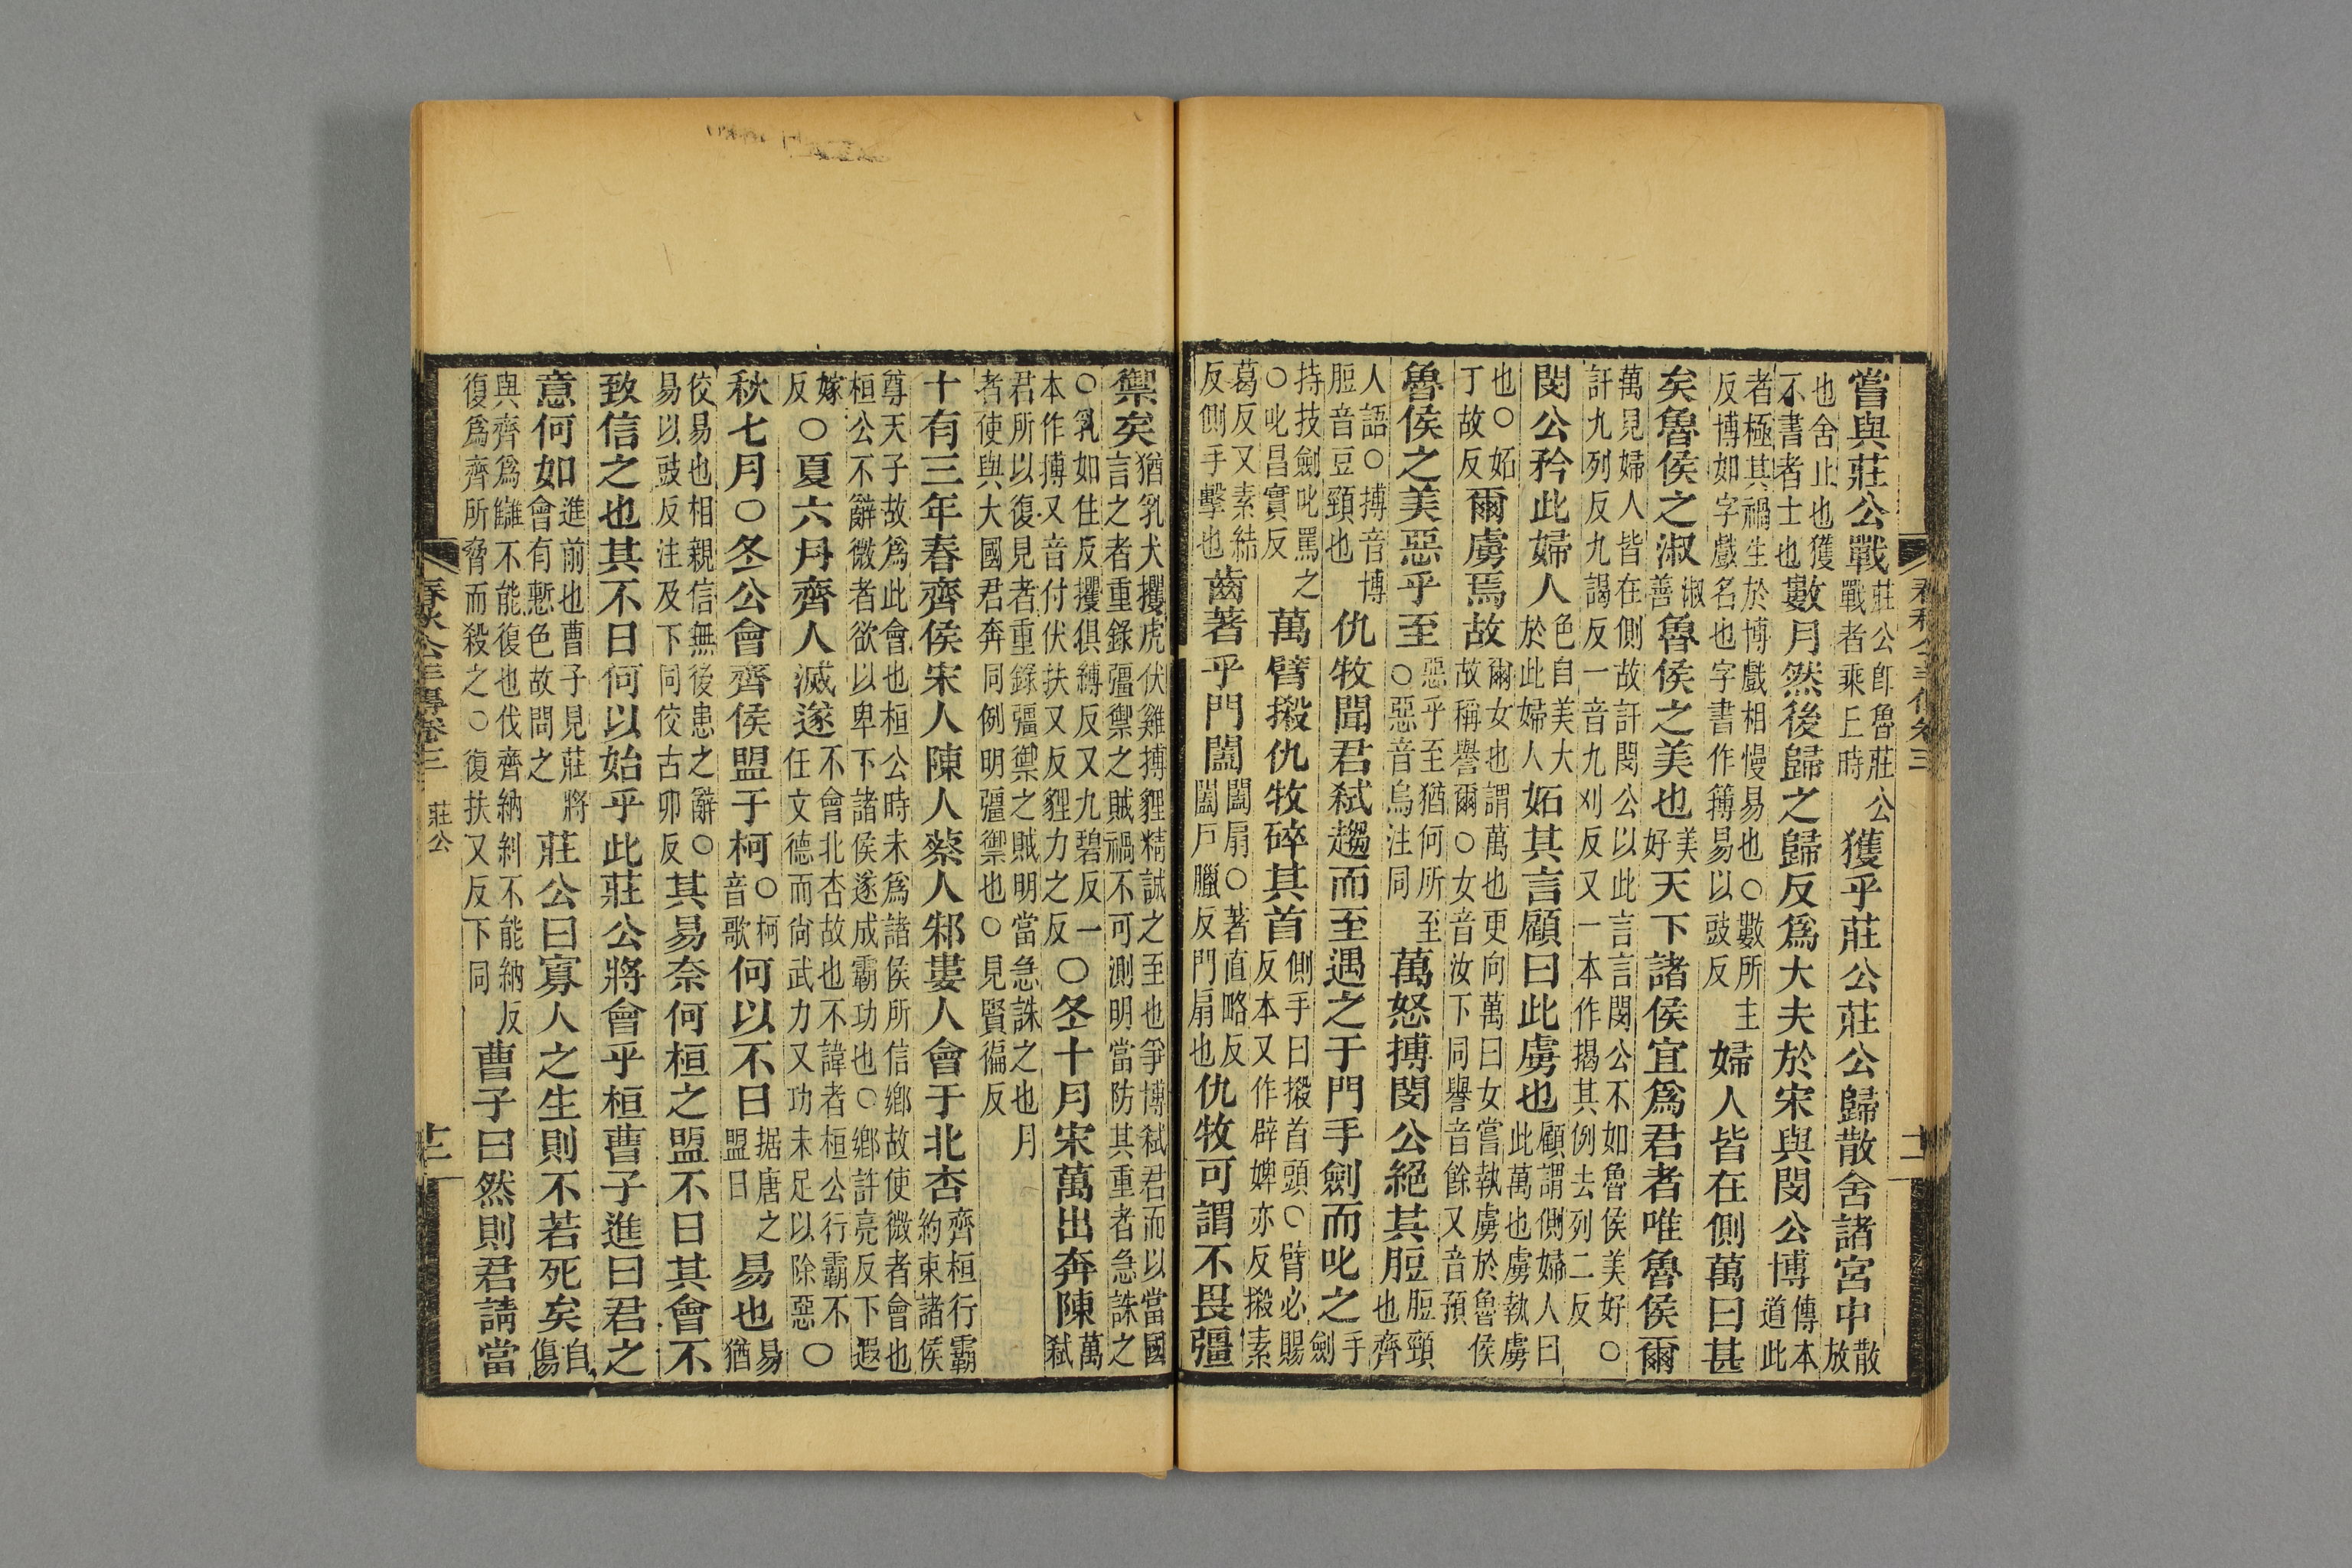 嘗與莊公戰莊公卽魯莊公戰者乘丘時獲乎莊公莊公歸散舍諸宮中散放
也舍止也獲不書者士也數月然後歸之歸反爲大夫於宋與閔公博傳本道此
者極其禍生於博戲相慢易也○數所主反博如字戲名也字書作簙易以豉反婦人皆在側萬曰甚
矣魯侯之淑淑善魯侯之美也美好天下諸侯宜爲君者唯魯侯爾
萬見婦人皆在側故訐閔公以此言言閔公不如魯侯美好○訐九列反九謁反一音九刈反又一本作揭其例去列二反
閔公矜此婦人色自美大於此婦人妬其言顧曰此虜也顧謂側婦人曰此萬也虜執虜
也○妬丁故反爾虜焉故爾女也謂萬也更向萬曰女嘗執虜於魯侯故稱譽爾○女音汝下同譽音餘又音預
魯侯之美惡乎至惡乎至猶何所至○惡音烏注同萬怒搏閔公絕其脰脰頸也齊
人語○搏音博脰音豆頸也仇牧聞君弒趨而至遇之于門手劍而叱之手劍
持技劍叱罵之○叱昌實反萬臂摋仇牧碎其首側手曰摋首頭○臂必賜反本又作辟婢亦反摋素
葛反又素結反側手擊也齒著乎門闔闔扇○著直略反闔戶臘反門扇也仇牧可謂不畏彊
禦矣猶乳犬攫虎伏雞搏貍精誠之至也爭博弒君而以當國言之者重錄彊禦之賊禍不可測明當防其重者急誅之
○乳如住反攫俱縛反又九碧反一本作搏又音付伏扶又反貍力之反○冬十月宋萬出奔陳萬弒
君所以復見者重錄彊禦之賊明當急誅之也月者使與大國君奔同例明彊禦也○見賢徧反
十有三年春齊侯宋人陳人蔡人邾婁人會于北杏齊桓行霸約束諸侯
尊天子故爲此會也桓公時未爲諸侯所信鄉故使微者會也桓公不辭微者欲以卑下諸侯遂成霸功也○鄉許亮反下遐
嫁反○夏六月齊人滅遂不會北杏故也不諱者桓公行霸不任文德而尙武力又功未足以除惡○
秋七月○冬公會齊侯盟于柯○柯音歌何以不日据唐之盟日易也易猶
佼易也相親信無後患之辭○易以豉反注及下同佼古卯反其易奈何桓之盟不日其會不
致信之也其不日何以始乎此莊公將會乎桓曹子進曰君之
意何如進前也曹子見莊將會有慙色故問之莊公曰寡人之生則不若死矣自傷
與齊爲讎不能復也伐齊納糾不能納反復爲齊所脅而殺之○復扶又反下同曹子曰然則君請當
春秋公羊傳卷三
莊公